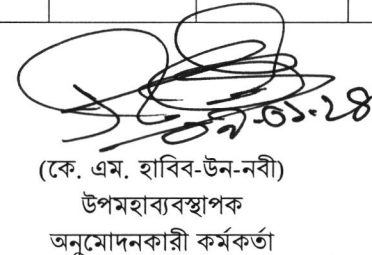 (কে. এম. হাবিব-উন-নবী)
উপমহাব্যবস্থাপক
অনুমোদনকারী কর্মকর্তা